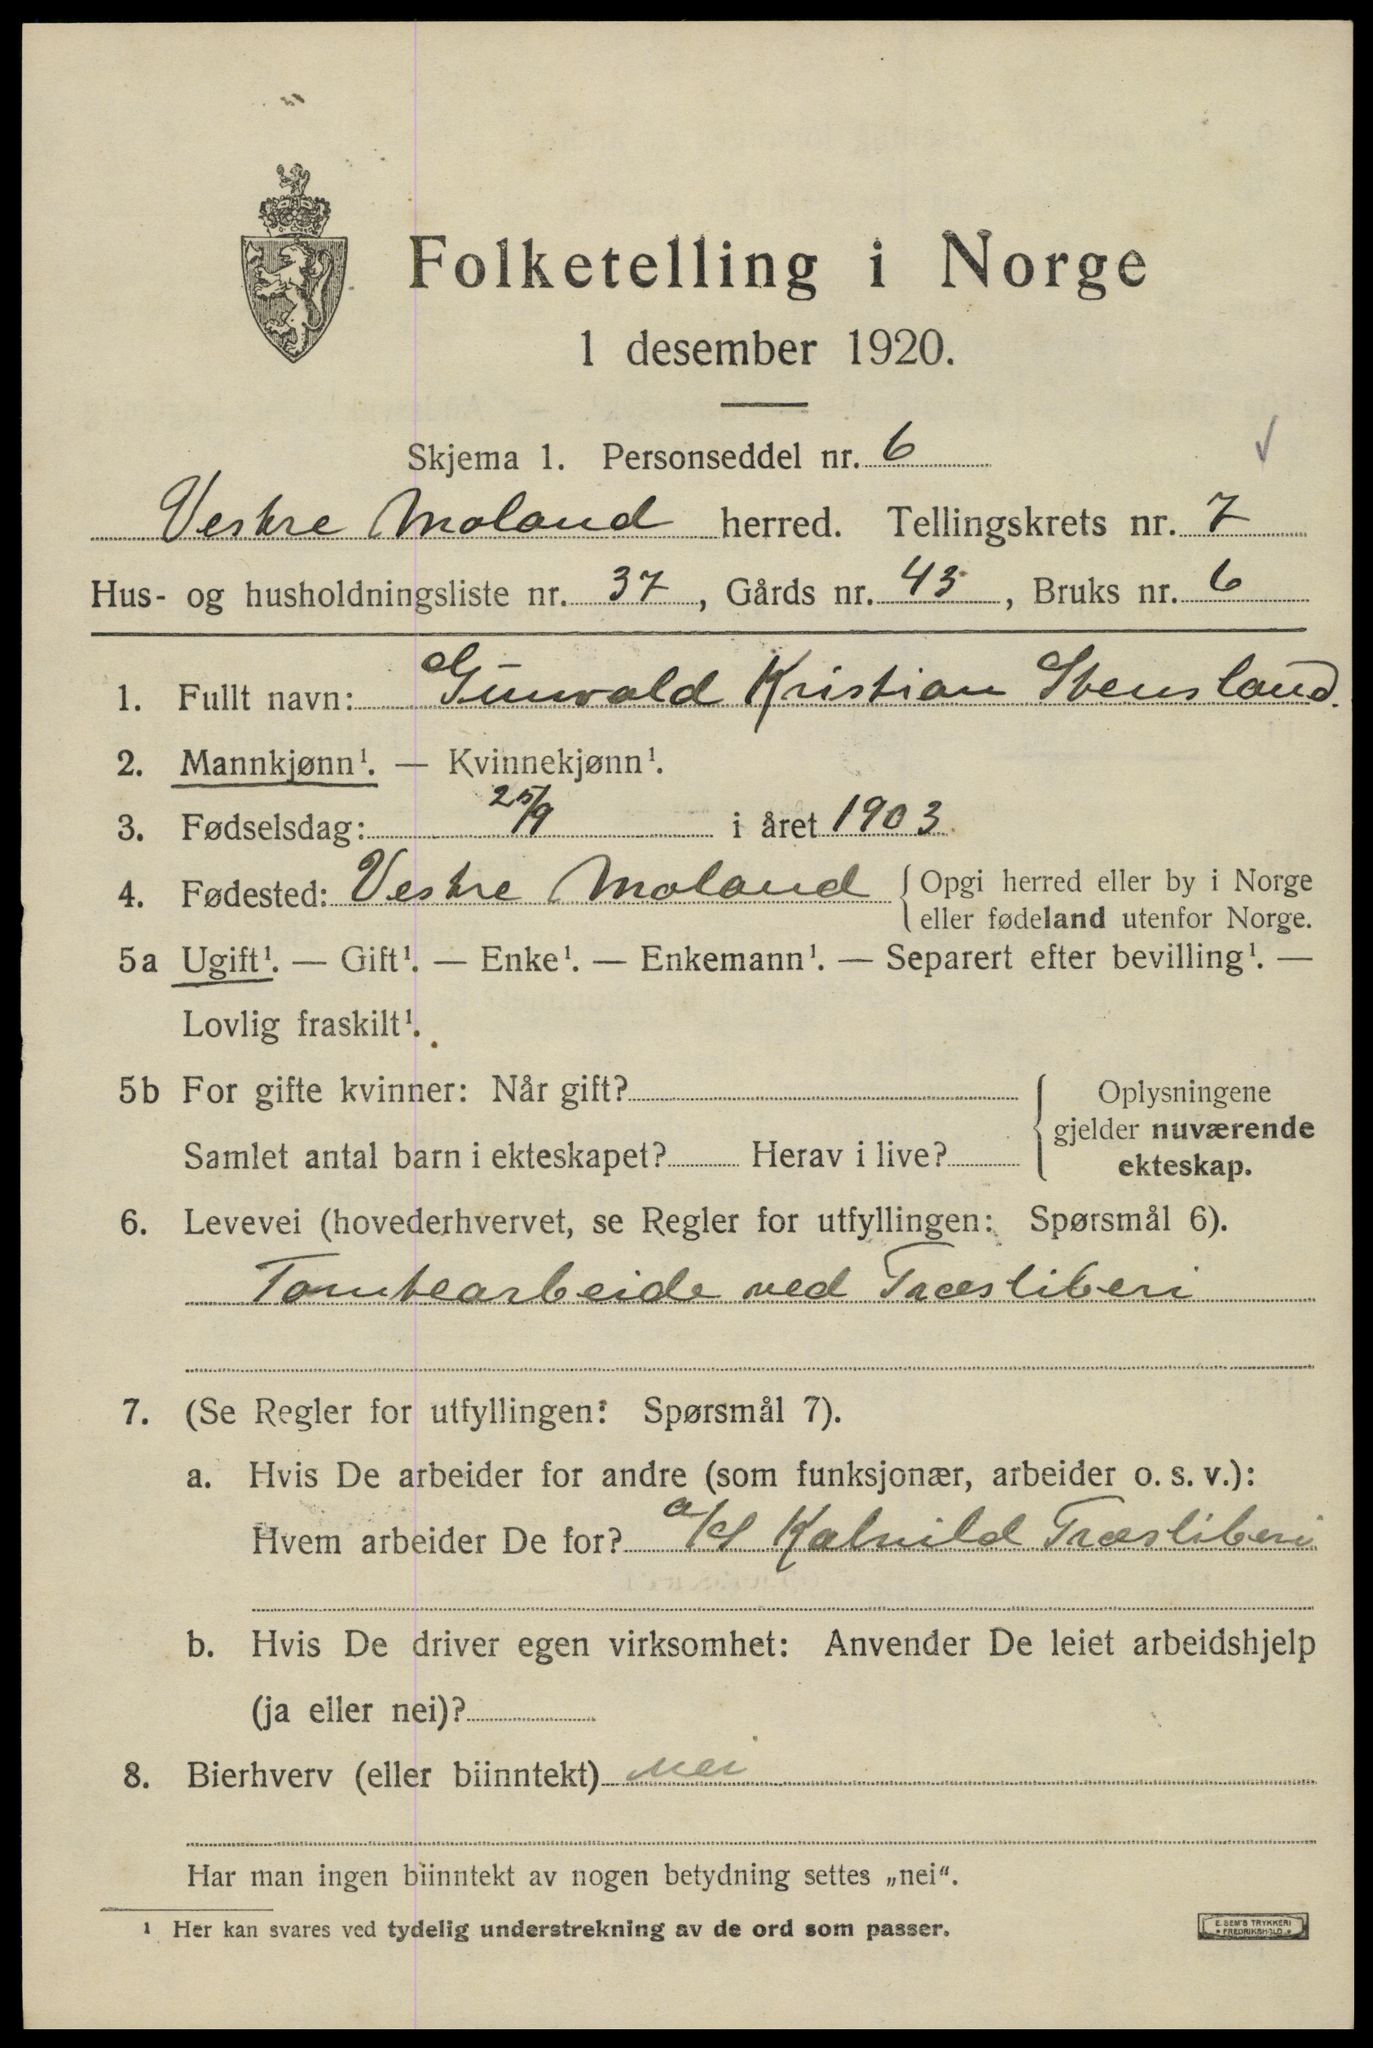 Folketelling i Norge
1 desember 1920.
Skjema 1. Personseddel nr. 6
Vestre Moland herred. Tellingskrets nr. 7
Hus- og husholdningsliste nr. 37, Gårds nr. 43, Bruks nr. 6
1. Fullt navn: Gunvald Kristian Stensland.
2. Mannkjønn¹. — Kvinnekjønn¹.
3. Fødselsdag: 25/9 i året 1903.
4. Fødested: Vestre Moland { Opgi herred eller by i Norge
eller fødeland utenfor Norge.
5a Ugift¹. — Gift¹. — Enke¹. — Enkemann¹. — Separert efter bevilling¹. —
Lovlig fraskilt¹.
5b For gifte kvinner: Når gift? { Oplysningene
gjelder nuværende
Samlet antal barn i ekteskapet? Herav i live? ekteskap.
6. Levevei (hovederhvervet, se Regler for utfyllingen: Spørsmål 6).
Tomtearbeide ved Træsliberi
7. (Se Regler for utfyllingen: Spørsmål 7).
a. Hvis De arbeider for andre (som funksjonær, arbeider o. s. v.):
Hvem arbeider De for? a/s Kalvild Træsliberi
b. Hvis De driver egen virksomhet: Anvender De leiet arbeidshjelp
(ja eller nei)?
8. Bierhverv (eller biinntekt) nei
Har man ingen biinntekt av nogen betydning settes „nei“.
¹ Her kan svares ved tydelig understrekning av de ord som passer.
E. SEM'S TRYKKERI
FREDRIKSHALD